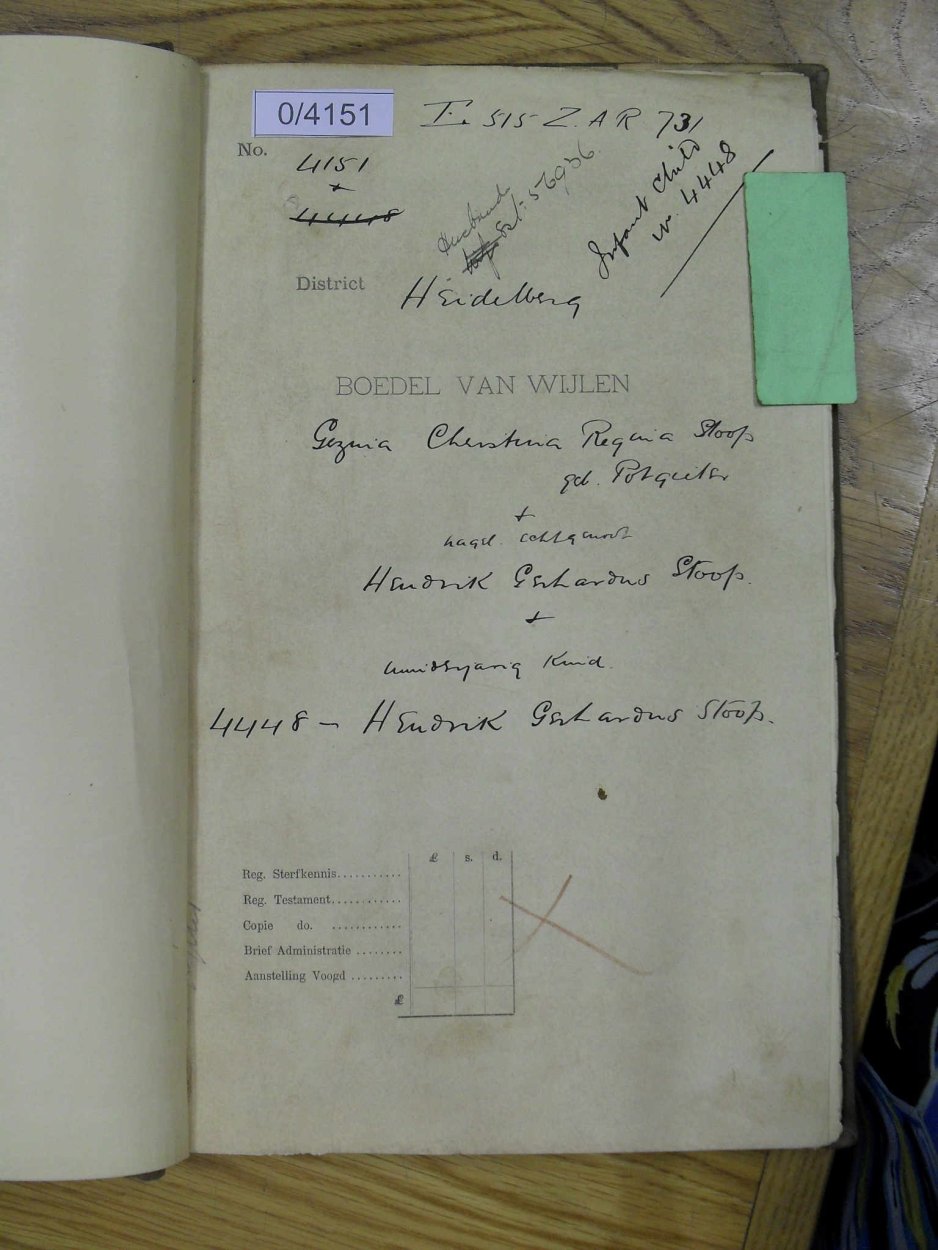 0/4151
I. 515 Z.A R 731
No.
4151
+
4448
Husband's
Est: 56936.
Infant Child
is. 4448
District Heidelberg
BOEDEL VAN WIJLEN
Gezina Cherstina Regina Stoop
geb. Potgieter
+
nagel. echtgenoot
Hendrik Gerhardus Stoop.
+
minderjarig Kind.
4448 - Hendrik Gerhardus Stoop.
£ s. d.
Reg. Sterfkennis...........
Reg. Testament............
Copie do. ............
Brief Administratie ........
Aanstelling Voogd .........
£